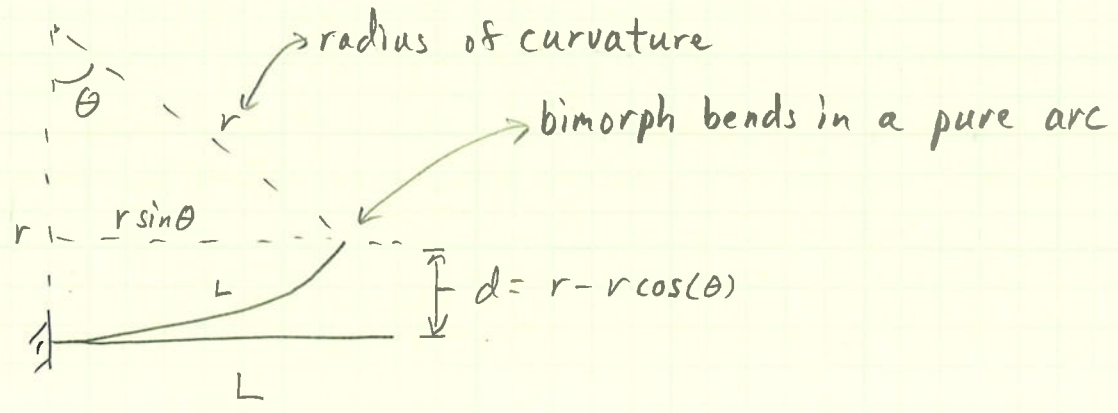 radius of curvature
θ
r
bimorph bends in a pure arc
r sinθ
r
L
d = r - r cos(θ)
L